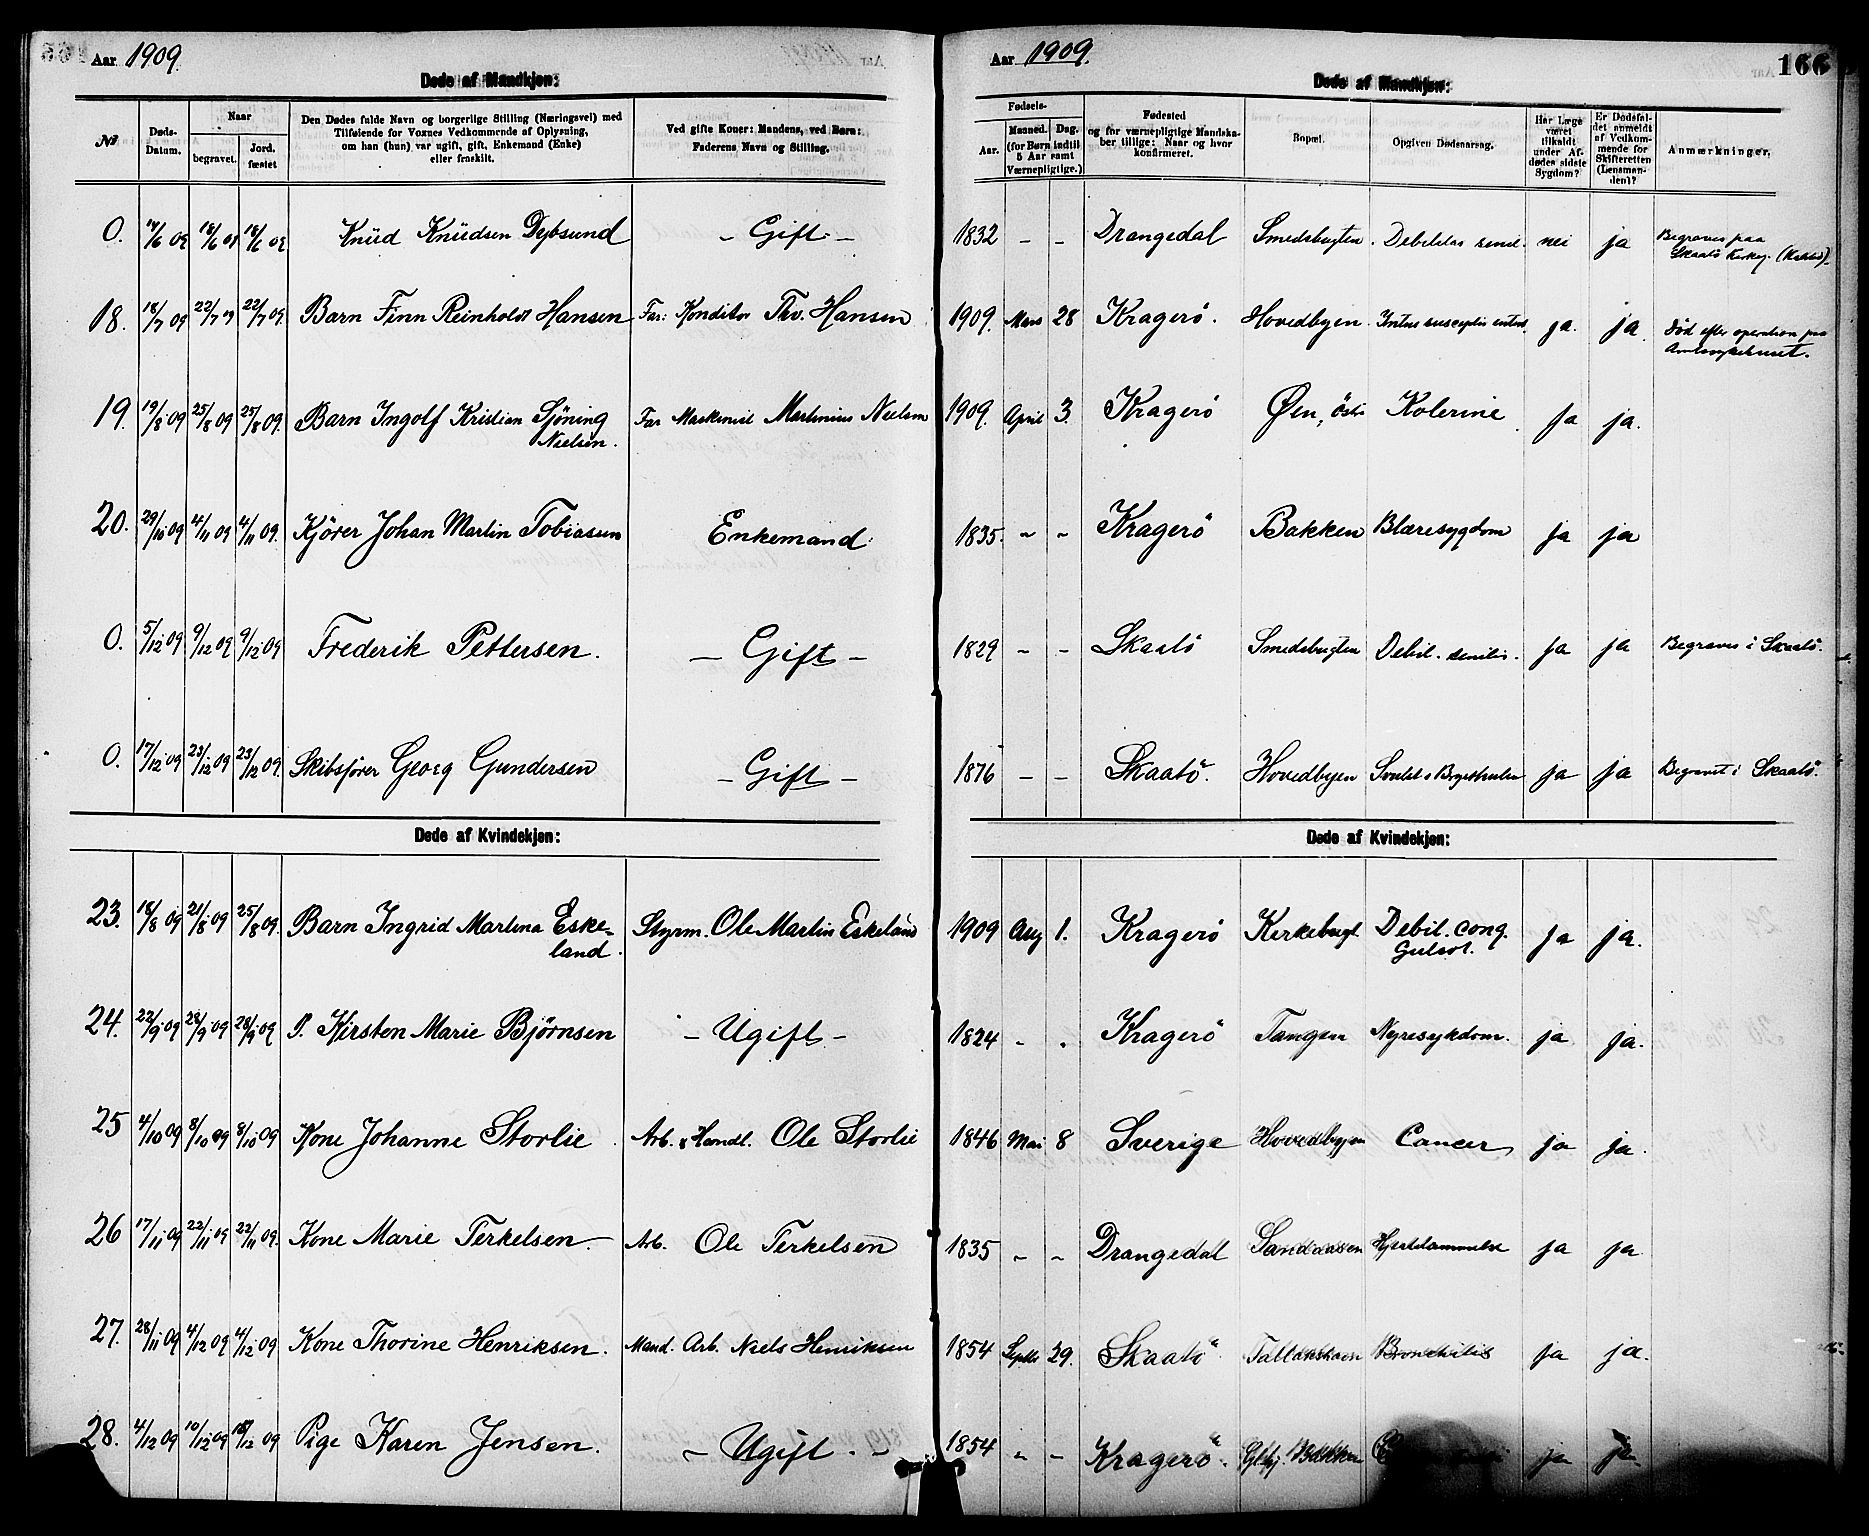 Aar 1909.
Døde af Mandkjøn:
Nr
Døds-Datum.
Naar
begravet.
Jord-fæstet
Den Dødes fulde Navn og borgerlige Stilling (Næringsvei) med
Tilføiende for Voxnes Vedkommende af Oplysning,
om han (hun) var ugift, gift, Enkemand (Enke)
eller fraskilt.
Ved gifte Koner: Mandens, ved Børn:
Faderens Navn og Stilling.
Aar 1909.
166
Døde af Mandkjøn:
Fødsels-
Aar.
Maaned. Dag.
(for Børn indtil
5 Aar samt
Værnepligtige.)
Fødested
og for værnepligtige Mandska-
ber tillige: Naar og hvor
konfirmeret.
Bopæl.
Opgiven Dødsaarsag.
Har Læge
været
tilkaldt
under Af-
dødes sidste
Sygdom?
Er Dødsfal-
det anmeldt
af Vedkom-
mende for
Skifteretten
(Lensman-
den)?
Anmærkninger.
0. 14/6 09 18/6 09 18/6 09 Knud Knudsen Dybsund – Gift – 1832 – – Drangedal Smedsbugten. Debilitas senil. nei ja Begraves paa
Skaatø Kirkeg.
18. 18/7 09 22/7 09 22/7 09. Barn Finn Reinholdt Hansen Far: Konditor Thv. Hansen 1909. Mars 28 Kragerö. Hovedbyen. ja. ja. Død efter operation paa
Amtssykehuset.
19. 19/8 09 25/8 09 25/8 09. Barn Ingolf Kristian Sjöning
Nielsen. Far Maskinist Martinius Nielsen 1909. April 3. Kragerö Øen, Kolerine ja ja.
20. 29/10 09 4/11 09 4/11 09. Kjörer Johan Martin Tobiassen Enkemand 1835. – – Kragerö Bakken Blæresygdom ja ja
0. 5/12 09 9/12 09 9/12 09 Frederik Pettersen. – Gift – 1829 – – Skaatö Smedsbugten Debil. senilis. ja ja Begraves i Skaatö.
0. 17/12 09 23/12 09 23/12 09. Skibsfører Georg Gundersen – Gift – 1876 – – Skaatö. Hovedbyen ja ja Begravet i Skaatö.
Døde af Kvindekjøn:
Døde af Kvindekjøn:
23. 18/8 09 21/8 09 25/8 09. Barn Ingrid Martina Eske-
land. Styrm. Ole Martin Eskeland 1909 Aug 1. Kragerö Kirkebugt. Debil. cong.
Gulsot. ja ja.
24. 22/9 09 28/9 09 28/9 09 P. Kirsten Marie Bjørnsen – Ugift – 1824 - . Kragerö Tangen Nyresykdom. ja ja.
25 4/10 09 8/10 09 8/10 09 Kone Johanne Storlie. Arb. & Handl. Ole Storlie 1846 Mai 8 Sverige Hovedbyen Cancer ja ja.
26 17/11 09 22/11 09 22/11 09. Kone Marie Terkelsen. Arb. Ole Terkelsen 1835 – – Drangedal Sandaasen Hjertelammelse ja ja
27. 28/11 09 4/12 09 4/12 09 Kone Thorine Henriksen. Mand. Arb. Niels Henriksen 1854 Septbr 29. Skaatö Tallakshavn Bronchitis ja ja.
28. 4/12 09 10/12 09 12 09 Pige Karen Jensen. – Ugift – 1854 – – Kragerö. Bakken ja ja